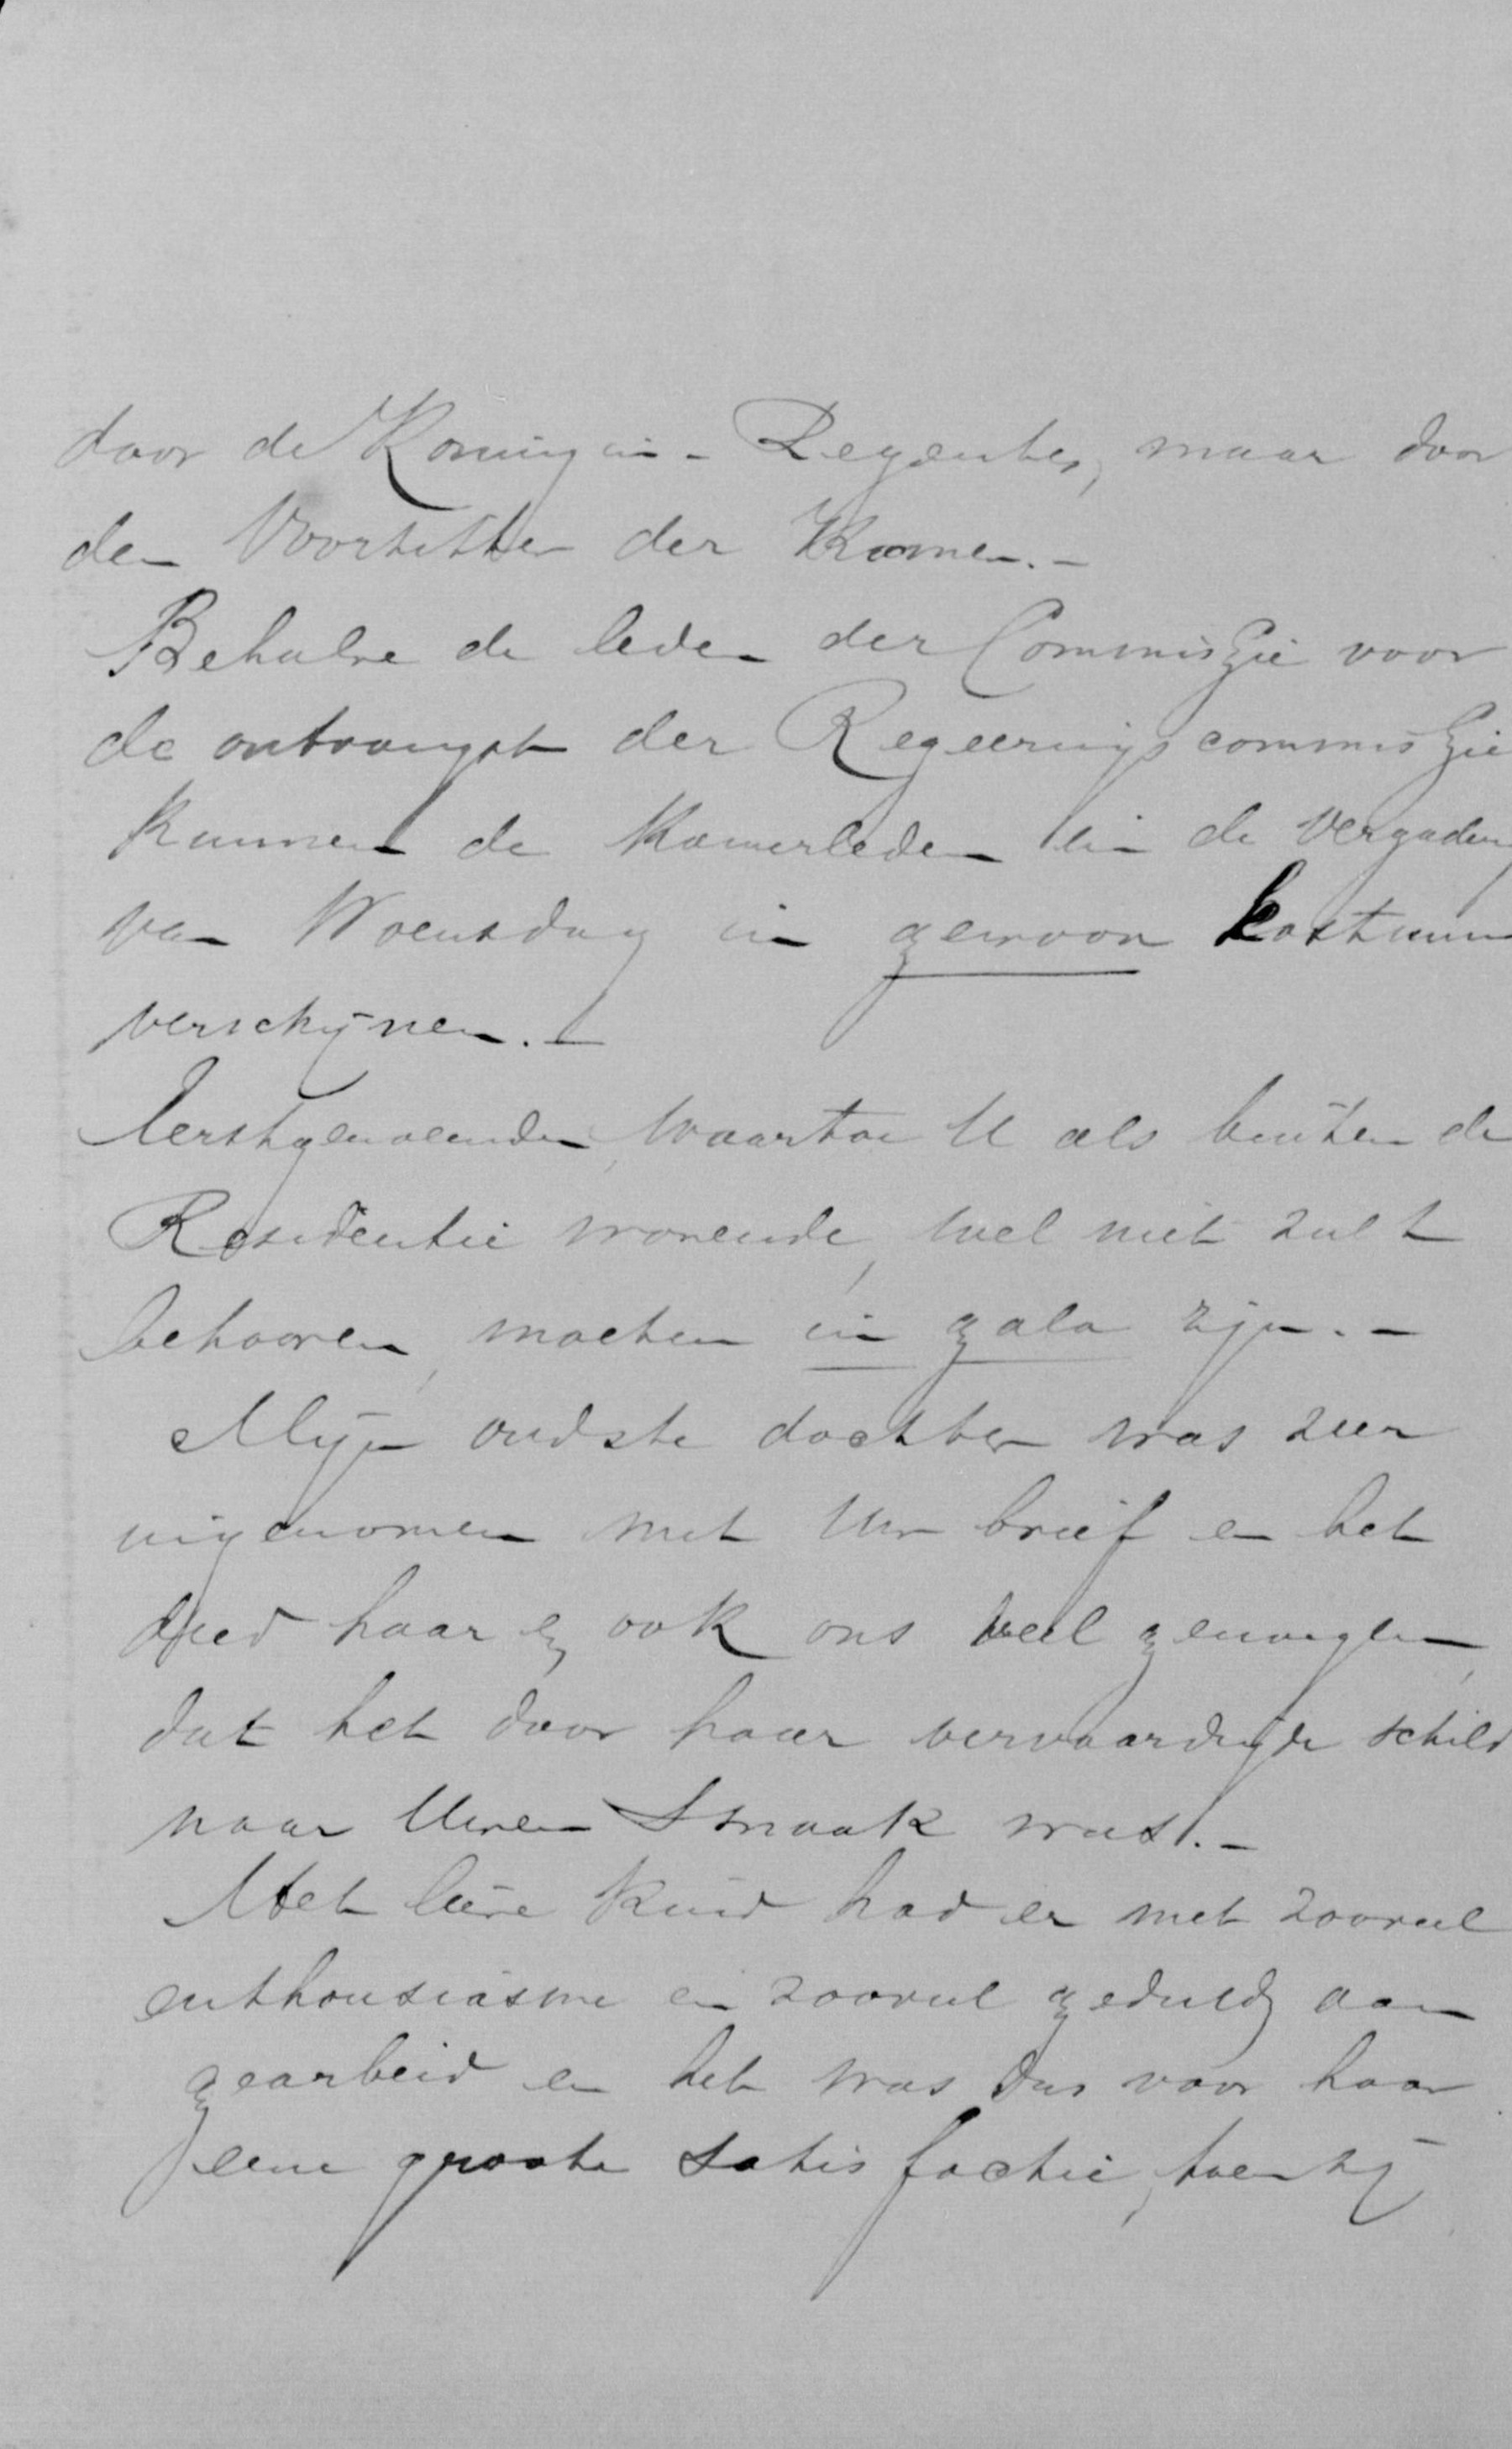 door de Koningin-Regentes, maar door
den Voorzitter der Kamer.-
Behalve de leden der Commissie voor
de ontvangst der Regeeringscommissie
kunnen de Kamerleden in de Vergadering
van Woensdag in gewoon kostuum
verschijnen.-
Eerstgenoemden, waartoe U als buiten de
Residentie wonende, wel niet zult
behooren, moeten in gala zijn.-
Mijn oudste dochter was zeer
ingenomen met Uw brief en het
deed haar en ook ons veel genoegen,
dat het door haar vervaardigde schild
naar Uwen Smaak was.-
Het lieve kind had er met zooveel
enthousiasme en zooveel geduld aan
gearbeid en het was dus voor haar
eene groote satisfactie, toen zij